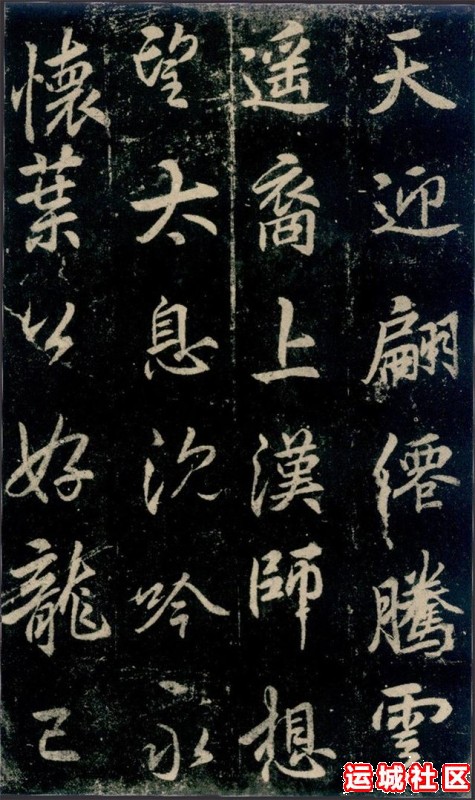 天迎翩僊騰雲
遥裔上漢師想
望太息沈吟永
懷葉公好龍已
运城社区